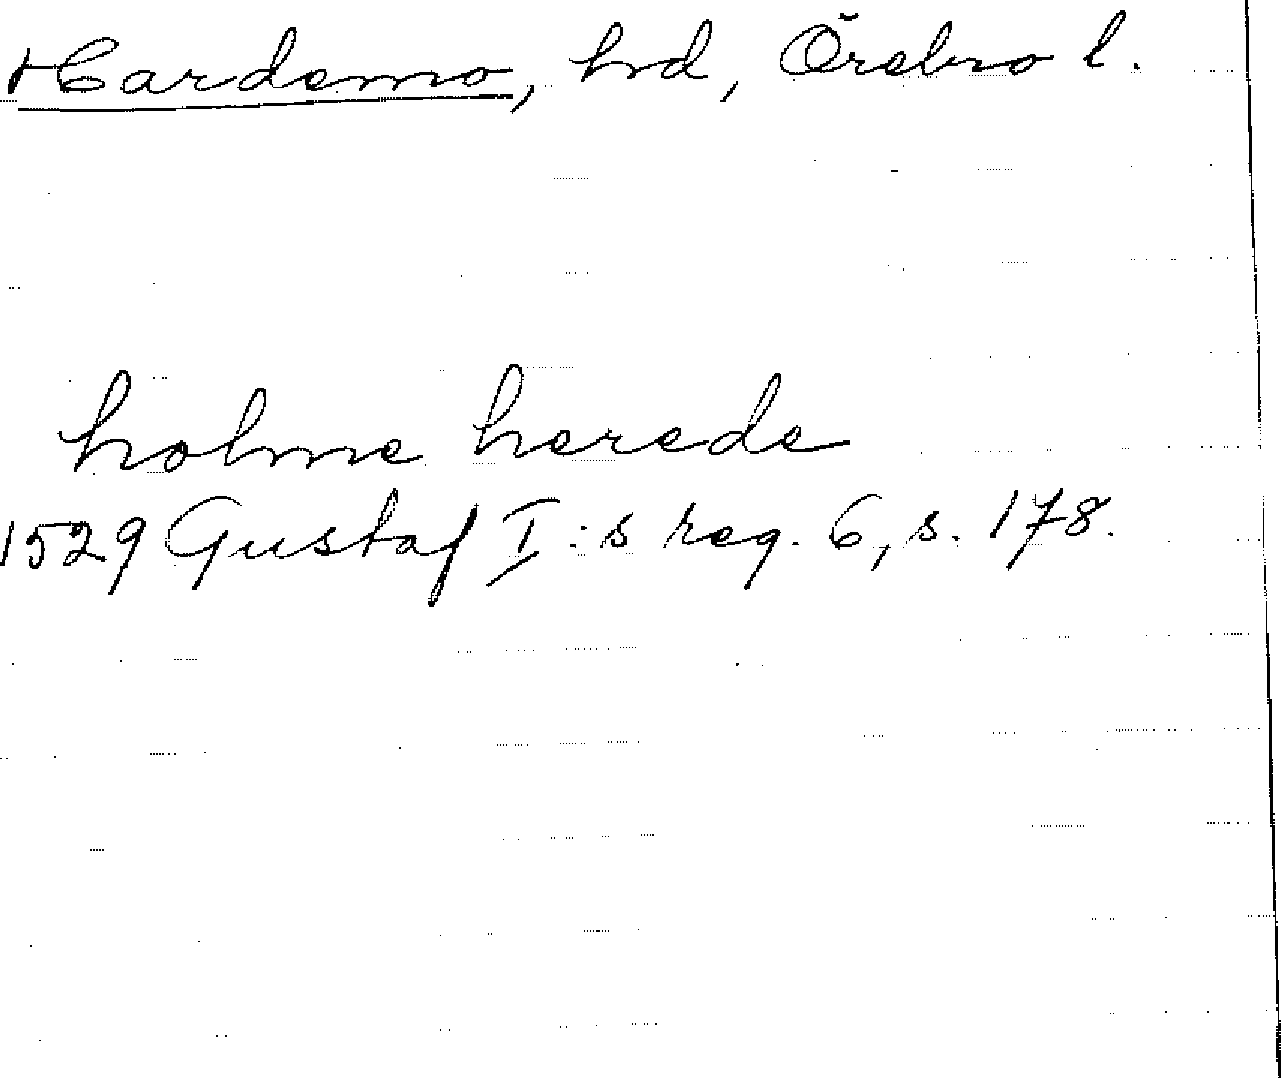 Hardemo, hrd, Örebro l.
holme herede
1529 Gustaf I:s reg. 6, s. 178.